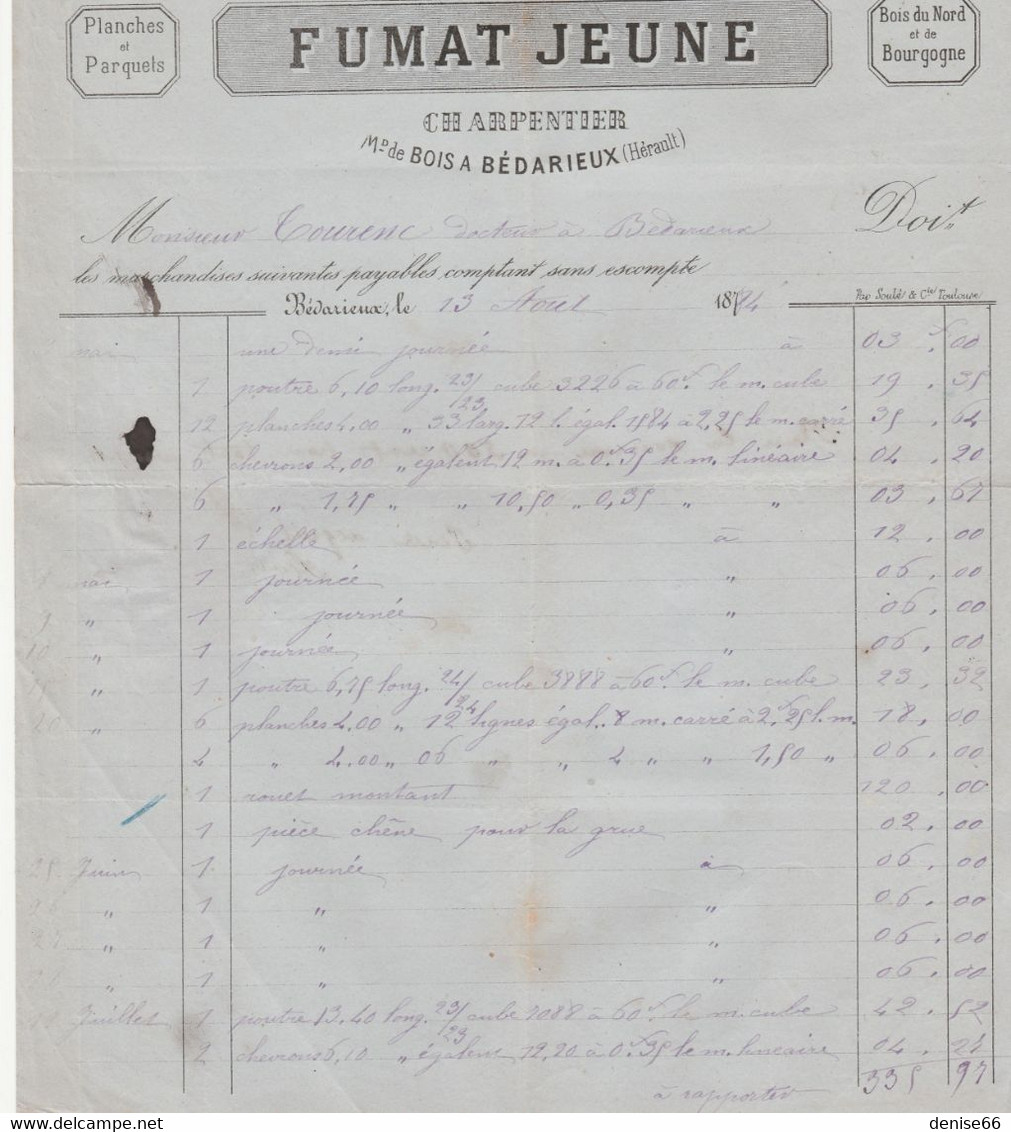 Planches
et
Parquets
FUMAT JEUNE
Bois du Nord
et de
Bourgogne
CHARPENTIER
Md de BOIS A BÉDARIEUX (Hérault)
Monsieur Tourenc docteur à Bédarieux Doit
les marchandises suivantes payables comptant sans escompte
Bédarieux, le 13 Aout 1874
Pap Soulé & Cie Toulouse
mai une demi journée à 03 f. 00
1 poutre 6,10 long. 23/23 cube 3226 à 60 f. le m. cube 19 . 35
12 planches 4.00 " 33 larg. 12 l. égal. 1584 à 2,25 le m. carré 35 . 64
6 chevrons 2,00 " égalent 12 m. à 0 f. 35 le m. linéaire 04 . 20
6 " 1,75 " " 10,50 " 0,35 " " 03 . 67
1 échelle à 12 . 00
mai 1 journée " 06 . 00
9 " 1 journée " 06 . 00
10 " 1 journée 06 . 00
" 1 poutre 6,75 long. 24/24 cube 3888 à 60 f. le m. cube 23 . 32
20 " 6 planches 4.00 " 12 lignes égal. 8 m. carré à 2 f. 25 l. m. 18 . 00
4 " 4.00 " 06 " " 4 " " 1,50 " 06 . 00
1 rouet montant 120 . 00
1 pièce chêne pour la grue 02 . 00
25 Juin 1 journée à 06 . 00
26 " 1 " " 06 . 00
27 " 1 " " 06 . 00
" 1 " " 06 . 00
Juillet 1 poutre 13.40 long. 23/23 cube 7088 à 60 f. le m. cube 42 . 52
2 chevrons 6,10 " égalent 12,20 à 0 f. 35 le m. linéaire 04 . 27
à rapporter 335 97
denise66